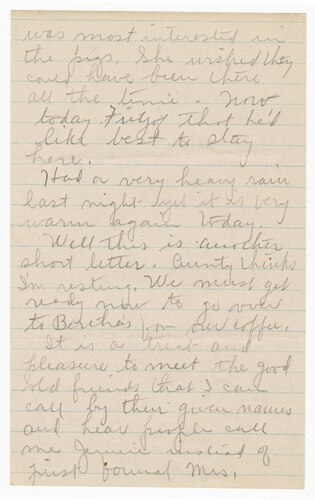 was most interested in
the pigs. She wished they
could have been there
all the time. Now
today Fritjof that he'd
like best to stay
here.
Had a very heavy rain
last night yet it is very
warm again today.
Well this is another
short letter. Aunty thinks
I'm resting. We must get
ready now to go over
to Bertha's for our coffee.
It is a treat and
pleasure to meet the good
old friends that I can
call by their given names
and hear people call
me Jennie instead of
just formal Mrs.